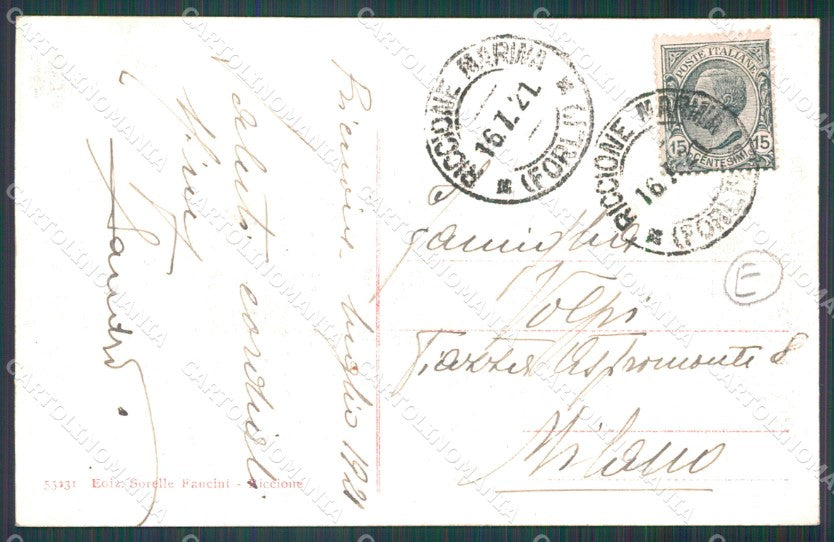 RICCIONE MARINA
16.7.21
(FORLI)
RICCIONE MARINA
16.7
(FORLI)
POSTE ITALIANE
15 CENTESIMI 15
E
Famiglia
Volpi
Piazza Aspromonte 8
Milano
Riccione luglio 1921
Saluti cordiali
Sandro.
53231 Ediz. Sorelle Fancini - Riccione
CARTOLINOMANIA